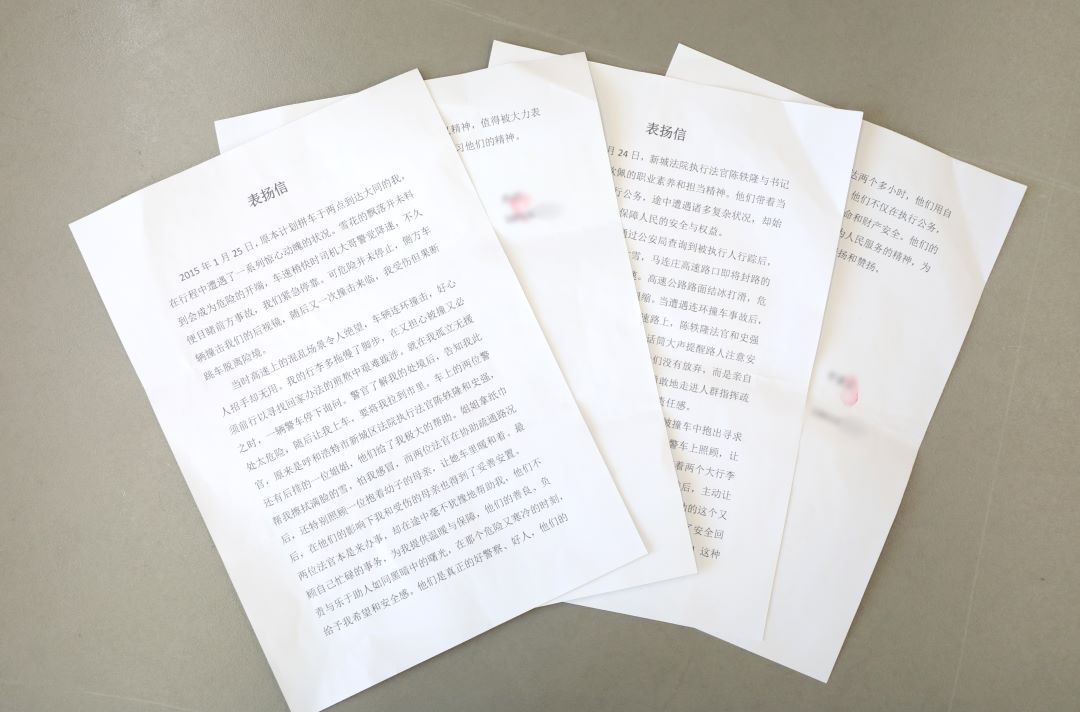 表扬信
2015 年 1 月 25 日，原本计划拼车于两点到达大同的我，
在行程中遭遇了一系列惊心动魄的状况。雪花的飘落并未料
到会成为危险的开端，车速稍快时司机大哥警觉降速，不久
便目睹前方事故，我们紧急停靠。可危险并未停止，侧方车
辆撞击我们的后视镜，随后又一次撞击来临，我受伤但果断
跳车脱离险境。
当时高速上的混乱场景令人绝望，车辆连环撞击，好心
人招手却无用。我的行李多拖慢了脚步，在又担心被撞又必
须前行以寻找回家办法的煎熬中艰难跋涉。就在我孤立无援
之时，一辆警车停下询问。警官了解我的处境后，告知我此
处太危险，随后让我上车，要将我拉到市里。车上的两位警
官，原来是呼和浩特市新城区法院执行法官陈轶隆和史强，
还有后排的一位姐姐，他们给了我极大的帮助。姐姐拿纸巾
帮我擦拭满脸的雪，怕我感冒，而两位法官在协助疏通路况
后，还特别照顾一位抱着幼子的母亲，让她车里暖和着。最
后，在他们的影响下我和受伤的母亲也得到了妥善安置。
两位法官本是来办事，却在途中毫不犹豫地帮助我，他们不
顾自己忙碌的事务，为我提供温暖与保障，他们的善良、负
责与乐于助人如同黑暗中的曙光，在那个危险又寒冷的时刻，
给予我希望和安全感。他们是真正的好警察、好人，他们的
精神，值得被大力表
习他们的精神。
表扬信
月 24 日，新城法院执行法官陈轶隆与书记
佩的职业素养和担当精神。他们带着当
行公务，途中遭遇诸多复杂状况，却始
保障人民的安全与权益。
通过公安局查询到被执行人行踪后，
雪，马连庄高速路口即将封路的
速。高速公路路面结冰打滑，危
缩。当遭遇连环撞车事故后，
速路上，陈轶隆法官和史强
话筒大声提醒路人注意安
们没有放弃，而是亲自
敢地走进人群指挥疏
责任感。
被撞车中抱出寻求
警车上照顾，让
着两个大行李
后，主动让
的这个又
了安全回
！这种
达两个多小时，他们用自
他们不仅在执行公务，
命和财产安全。他们的
为人民服务的精神，为
扬和赞扬。